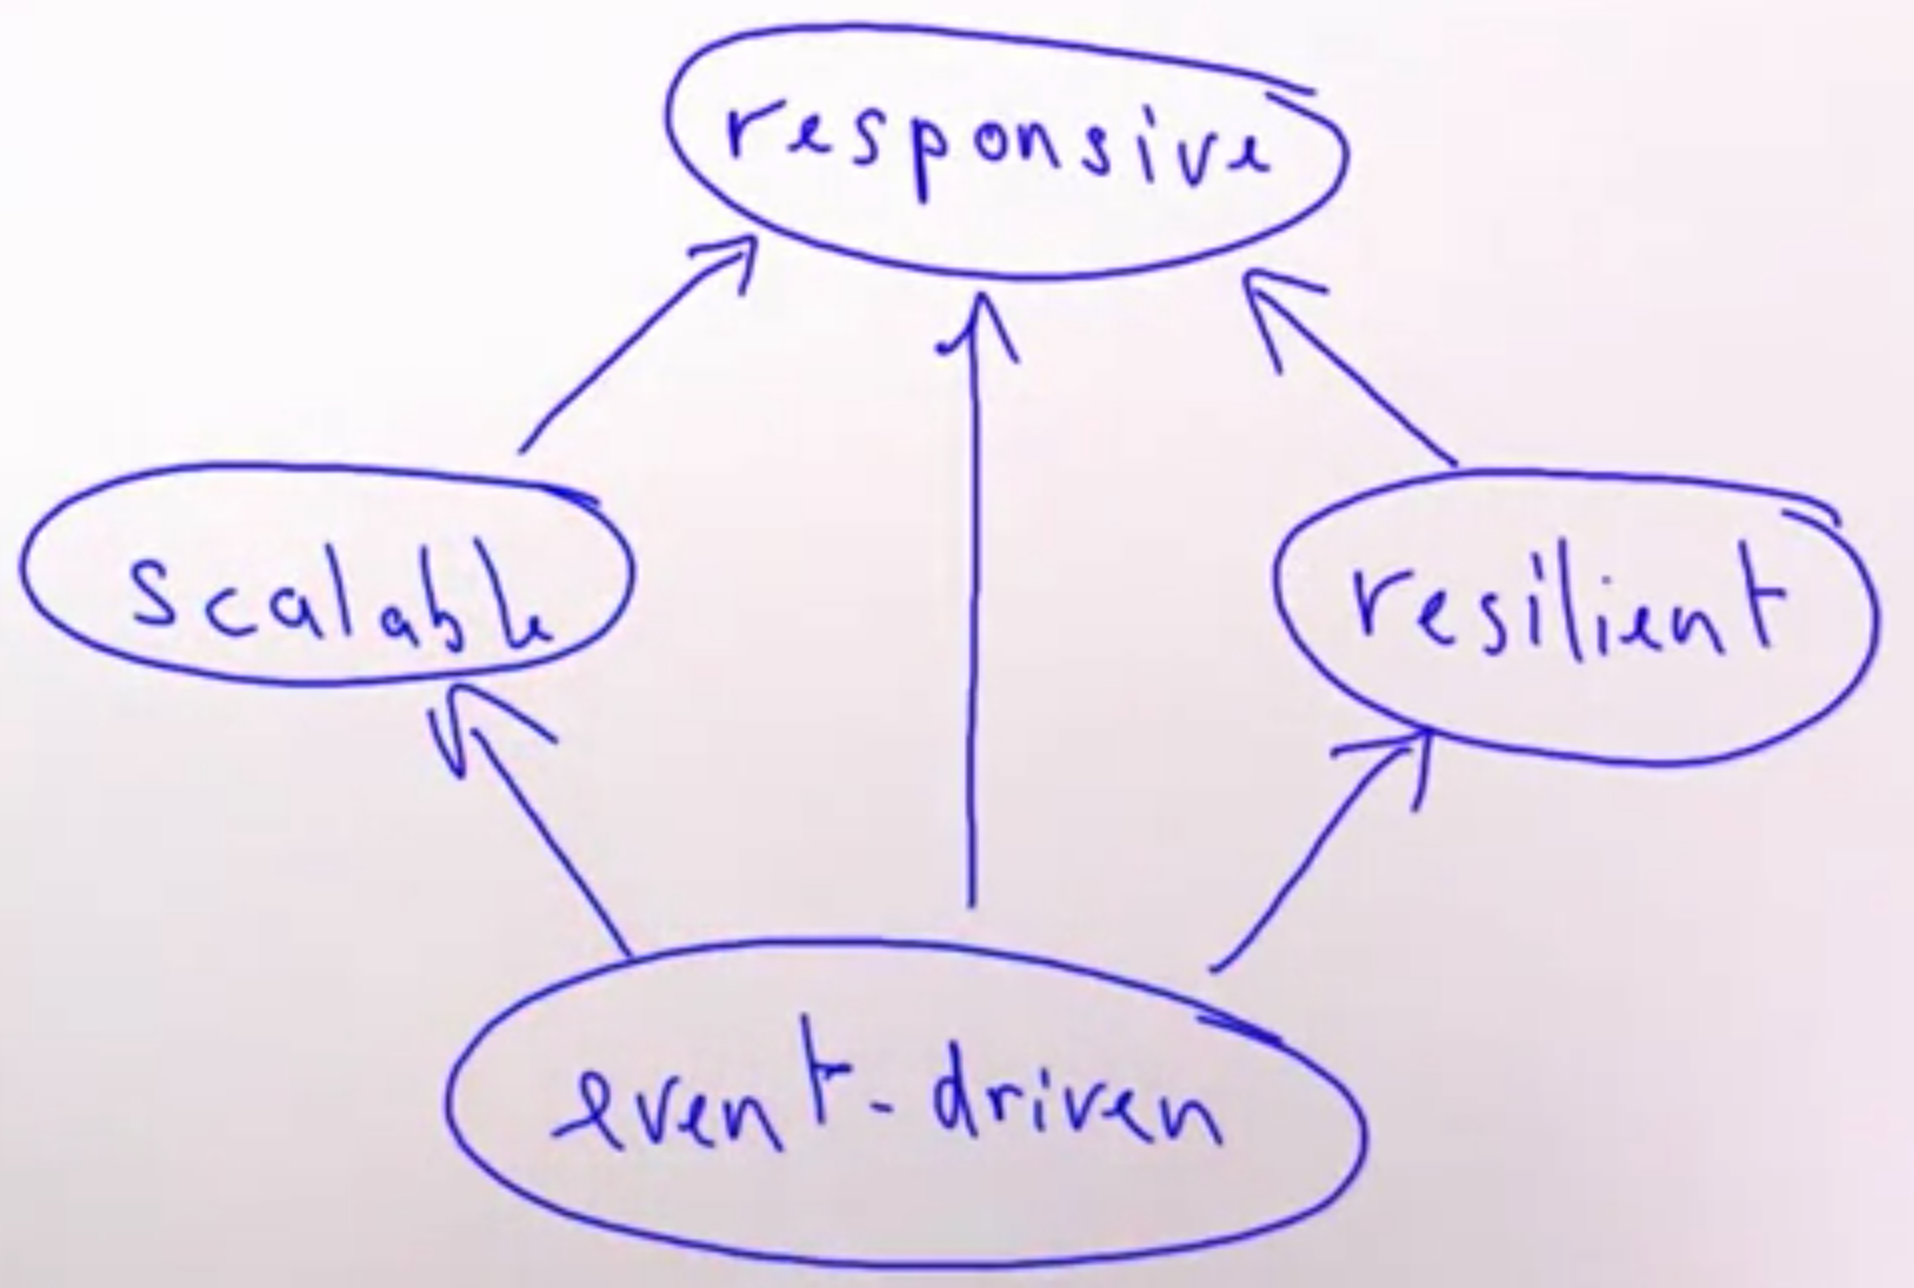 responsive
scalable
resilient
event-driven